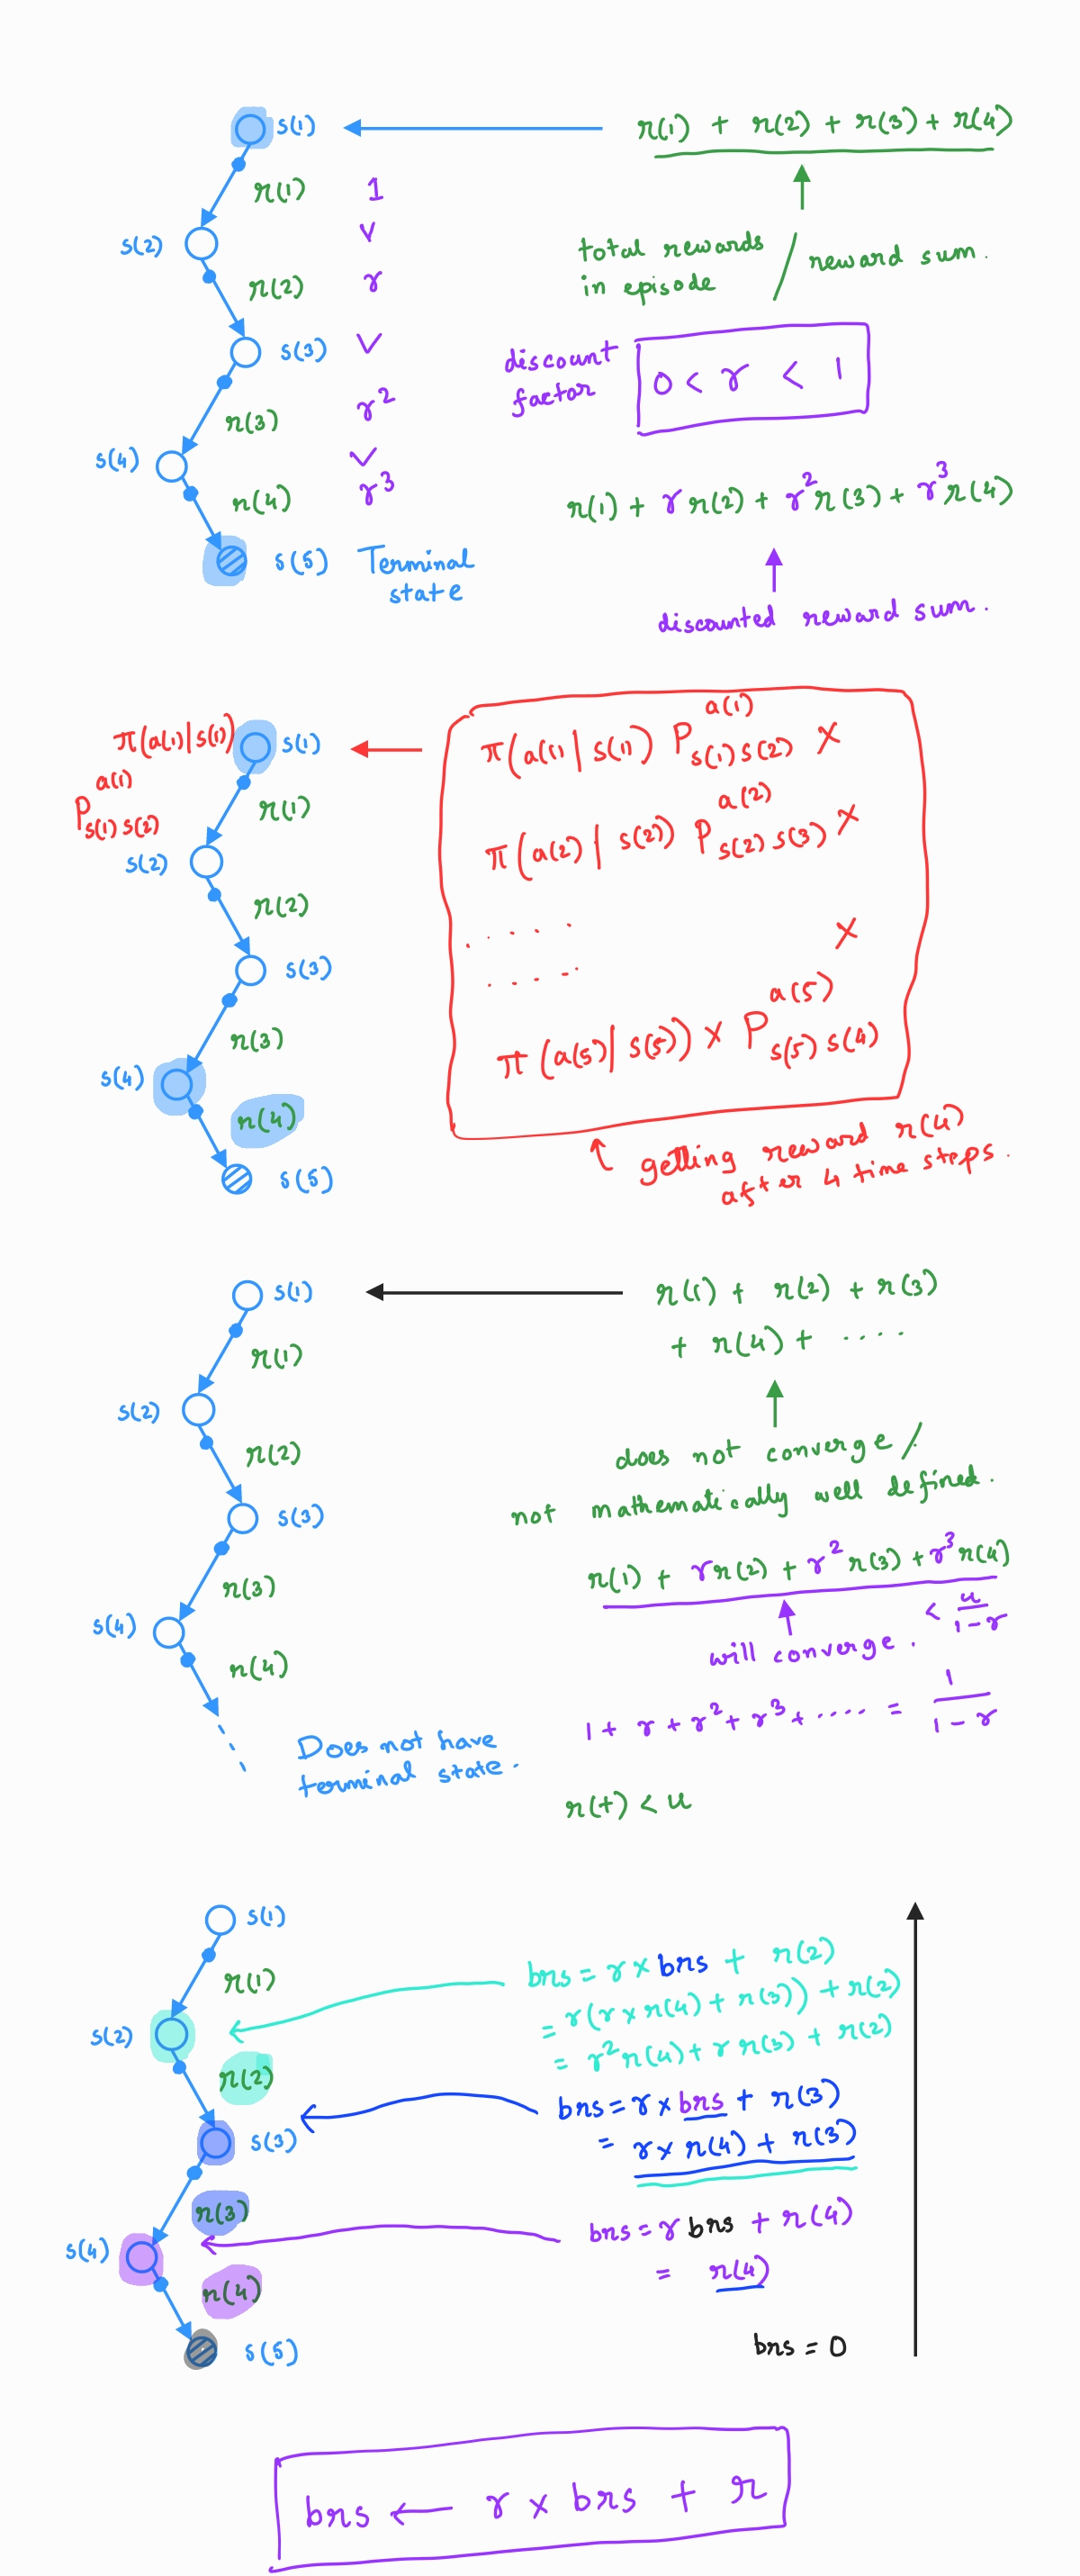 s(1)
r(1) + r(2) + r(3) + r(4)
r(1) 1
s(2) v
total rewards in episode / reward sum.
r(2) γ
s(3) v
discount factor 0 < γ < 1
r(3) γ²
s(4) v
r(4) γ³
r(1) + γ r(2) + γ² r(3) + γ³ r(4)
s(5) Terminal state
discounted reward sum.
π(a(1)|s(1)) s(1)
P^{a(1)}_{s(1) s(2)}
r(1)
s(2)
r(2)
s(3)
r(3)
s(4)
r(4)
s(5)
π(a(1) | s(1)) P^{a(1)}_{s(1) s(2)} ×
π(a(2) | s(2)) P^{a(2)}_{s(2) s(3)} ×
. . . . . ×
. . . . .
π(a(5) | s(5)) × P^{a(5)}_{s(5) s(4)}
getting reward r(4)
after 4 time steps.
s(1)
r(1)
s(2)
r(2)
s(3)
r(3)
s(4)
r(4)
Does not have
terminal state.
r(1) + r(2) + r(3)
+ r(4) + ....
does not converge /
not mathematically well defined.
r(1) + γr(2) + γ² r(3) + γ³ r(4)
< u/(1-γ)
will converge.
1 + γ + γ² + γ³ + ..... = 1/(1-γ)
r(t) < u
s(1)
r(1)
s(2)
r(2)
s(3)
r(3)
s(4)
r(4)
s(5)
brs = γ × brs + r(2)
= γ(γ × r(4) + r(3)) + r(2)
= γ² r(4) + γ r(3) + r(2)
brs = γ × brs + r(3)
= γ × r(4) + r(3)
brs = γ brs + r(4)
= r(4)
brs = 0
brs ← γ × brs + r